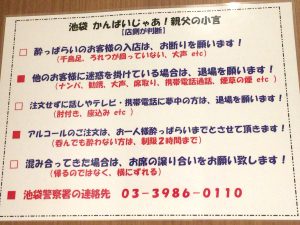 池袋 かんぱいじゃあ！親父の小言
【店側が判断】
□ 酔っぱらいのお客様の入店は、お断りを願います！
（千鳥足、ろれつが回っていない、大声 etc）
■ 他のお客様に迷惑を掛けている場合は、退場を願います！
（ナンパ、勧誘、大声、席取り、携帯電話通話、煙草の煙 etc）
□ 注文せずに話しやテレビ・携帯電話に夢中の方は、退場を願います！
（肘付き、座込み etc）
■ アルコールのご注文は、お一人様酔っぱらいまでとさせて頂きます！
（呑んでも酔わない方は、制限２時間まで）
□ 混み合ってきた場合は、お席の譲り合いをお願い致します！
（帰るのではなく、横にずれる）
■ 池袋警察署の連絡先 ０３-３９８６-０１１０